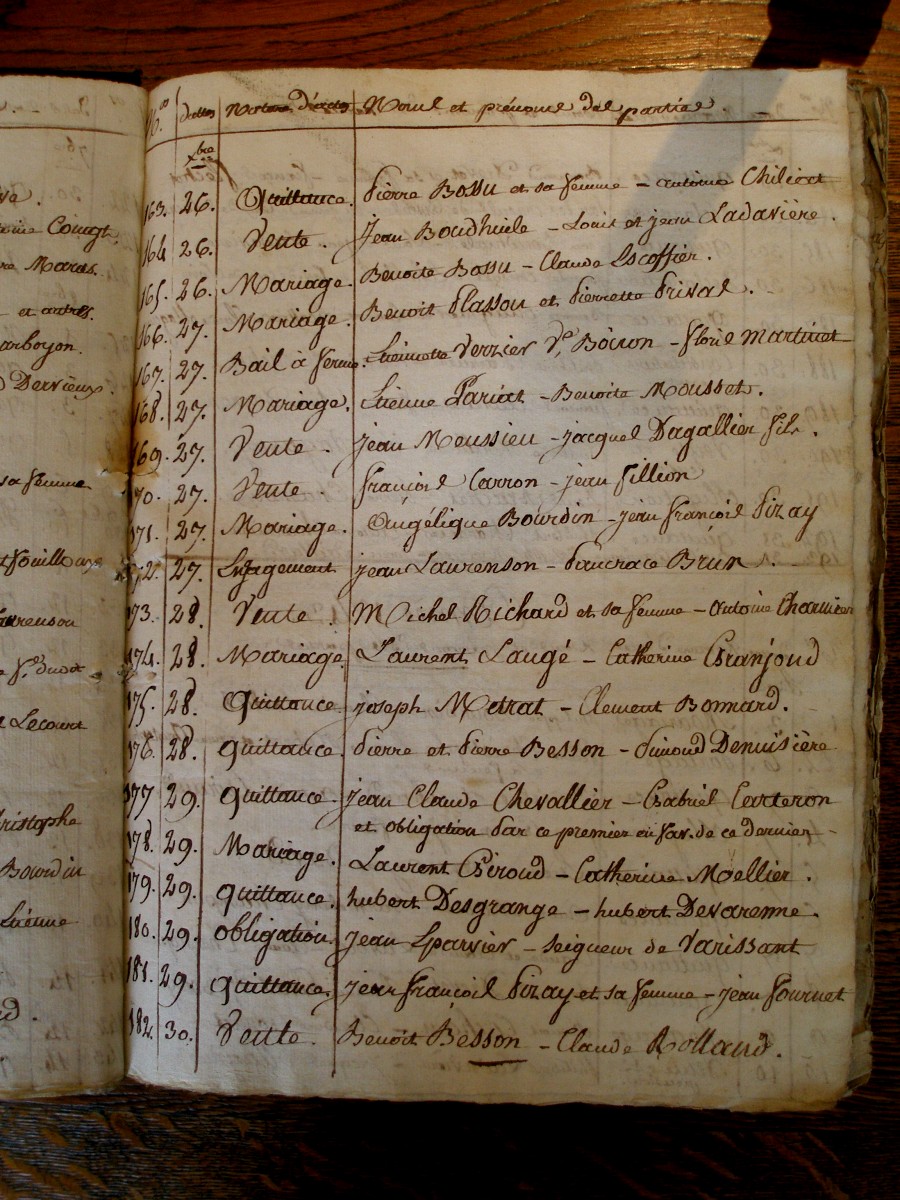 ve.
toine Coingt,
re Maras.
et autres.
arboyon.
Dervieux.
sa femme
fouilloux
aurenson
Lecourt
hristophe
Bourdin
Etienne
N.os dattes Nature d'actes Noms et prénoms des parties.
xbre
163. 26. Quittance. Pierre Bossu et sa femme - antoine Chiliat
164 26. Vente. Jean Boudhuile - Louis et jean Ladavière.
165. 26. Mariage. Benoite Bossu - Claude Escoffier.
166. 27. Mariage. Benoit Plasson et Pierrette Prival.
167. 27. Bail à ferme. Etiennette Verzier Ve. Boiron - floris Martinat
168. 27. Mariage. Etienne Pariat - Benoite Mousset.
169. 27. Vente. jean Moussieu - jacques Dagallier fils.
170. 27. Vente. françois Carron - jean fillion
171. 27. Mariage. Angélique Bourdin - jean françois Pizay
172. 27. Engagement jean Laurenson - Pancrace Brun.
173. 28. Vente. Michel Richard et sa femme - antoine Charvier
174. 28. Mariage. Laurent Laugé - Catherine Granjoud
175. 28. Quittance joseph Metrat - Clement Bonnard.
176. 28. quittance. Pierre et Pierre Besson - Simond Denuisière
177 29. quittance. jean Claude Chevallier - Gabriel Carteron
et obligation par ce premier en fav. de ce dernier
178. 29. Mariage. Laurent Giroud - Catherine Mollier.
179. 29. quittance. hubert Desgrange - hubert Devarenne.
180. 29. obligation. jean Lparvier - seigneur de Varissant
181. 29. quittance. jean françois Pizay et sa femme - jean fournet
182. 30. Vente. Benoit Besson - Claude Rolland.